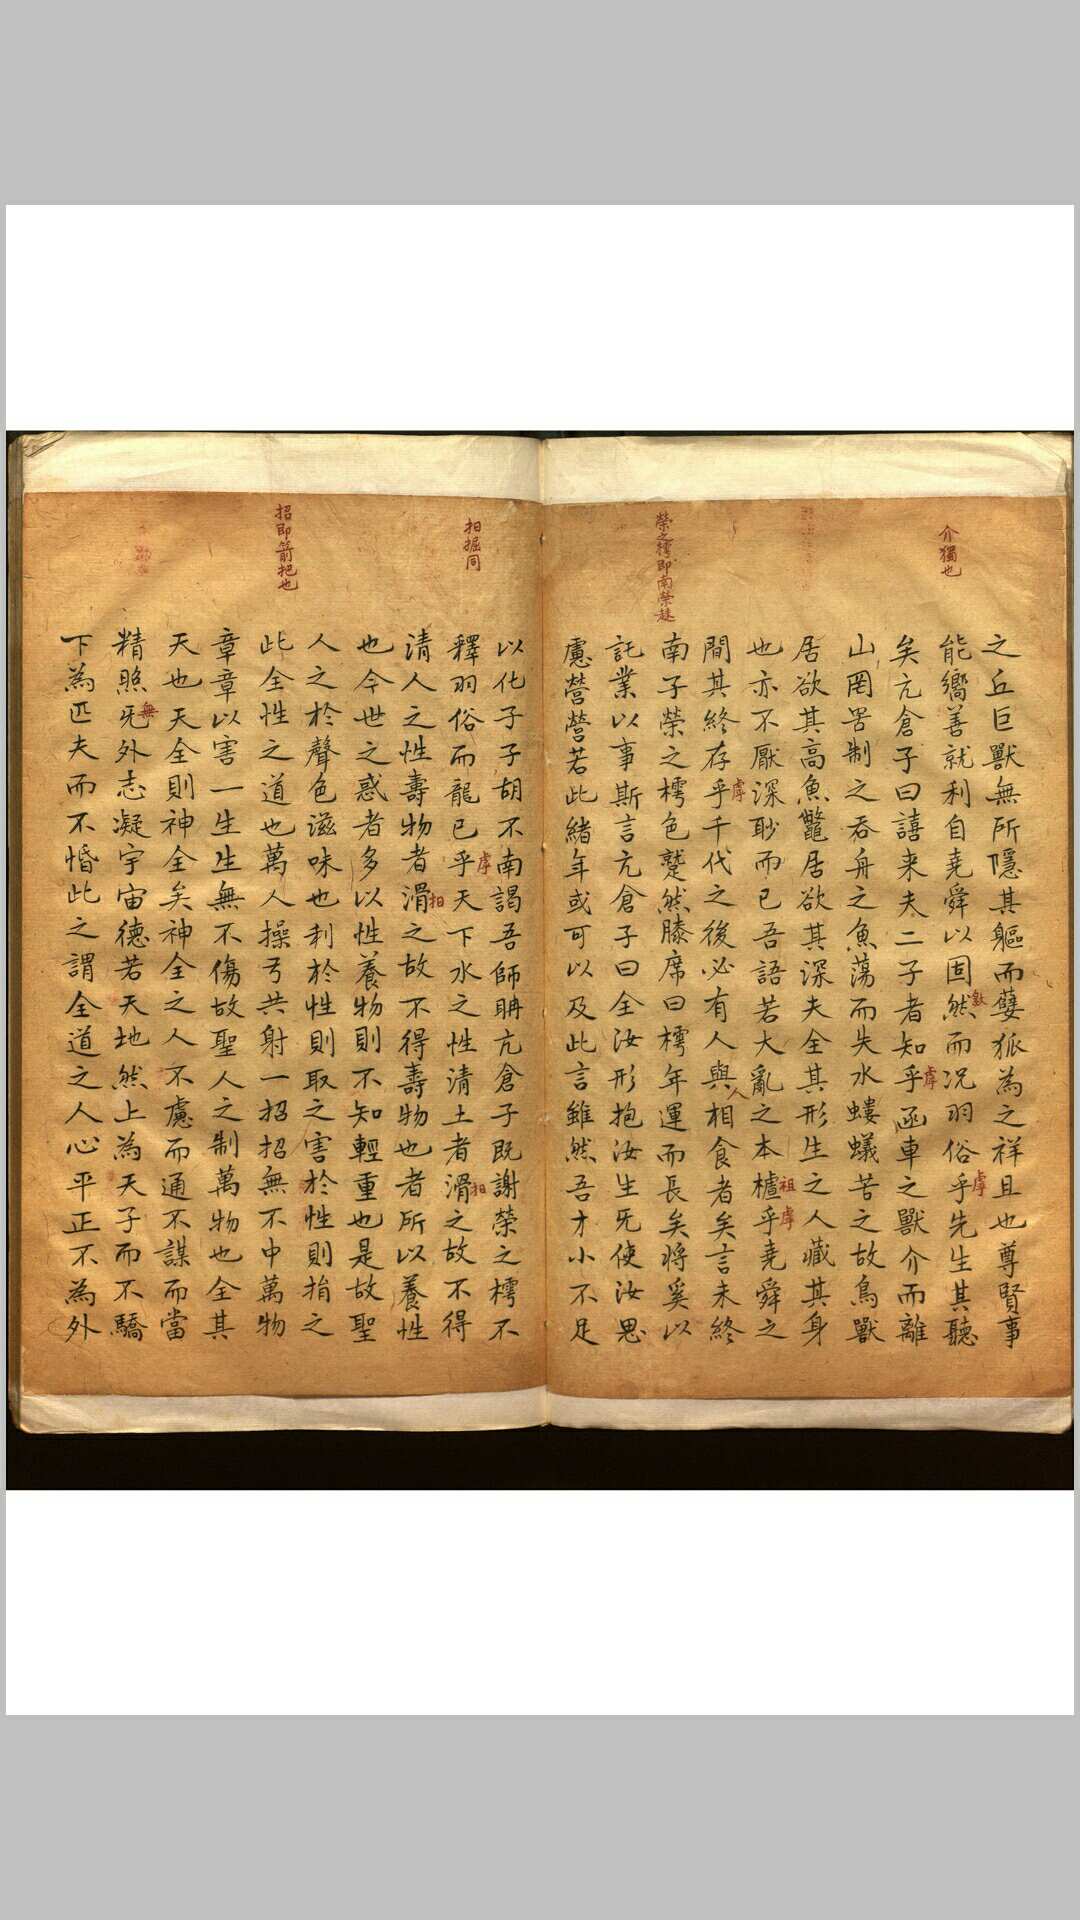 介獨也
榮之樗即南榮趎
之丘巨獸無所隱其軀而㜸狐為之祥且也尊賢事
能嚮善就利自堯舜以固然而况羽俗乎先生其聽
矣亢倉子曰譆来夫二子者知乎函車之獸介而離
山罔罟制之吞舟之魚蕩而失水螻蟻苦之故鳥獸
居欲其高魚鼈居欲其深夫全其形生之人藏其身
也亦不厭深眇而已吾語若大亂之本樝乎堯舜之
間其終存乎千代之後必有人與相食者矣言未終
南子榮之樗色蹵然膝席曰樗年運而長矣將奚以
託業以事斯言亢倉子曰全汝形抱汝生旡使汝思
慮營營若此緒年或可以及此言雖然吾才小不足
抇掘同
招即箭把也
以化子子胡不南謁吾師聃亢倉子既謝榮之樗不
釋羽俗而龍已乎天下水之性清土者滑之故不得
清人之性壽物者滑之故不得壽物也者所以養性
也今世之惑者多以性養物則不知輕重也是故聖
人之於聲色滋味也利於性則取之害於性則捐之
此全性之道也萬人操弓共射一招招無不中萬物
章章以害一生生無不傷故聖人之制萬物也全其
天也天全則神全矣神全之人不慮而通不謀而當
精照旡外志凝宇宙德若天地然上為天子而不驕
下為匹夫而不惛此之謂全道之人心平正不為外